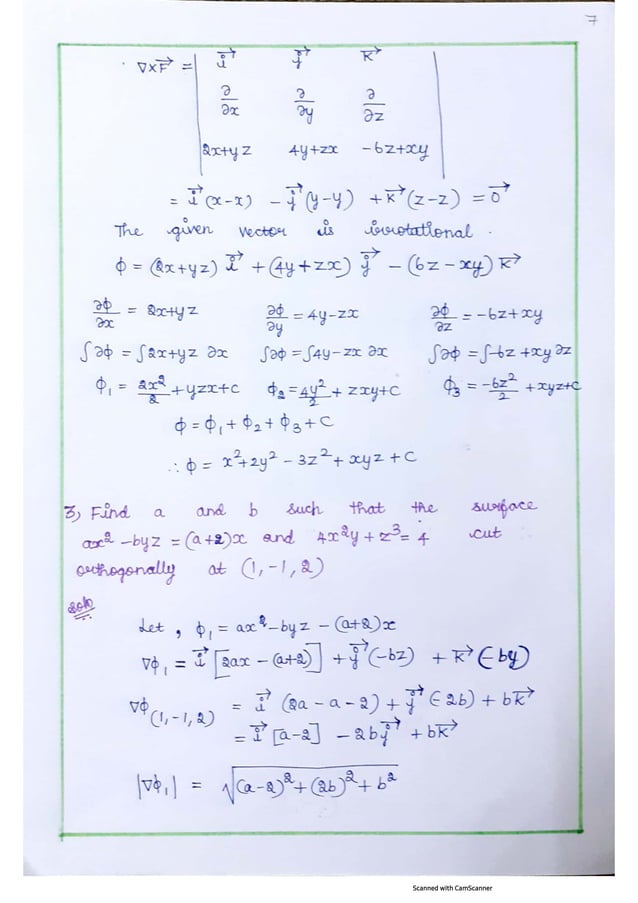 7
∇×F⃗ = | i⃗ j⃗ k⃗ |
| ∂/∂x ∂/∂y ∂/∂z |
| 2x+yz 4y+zx -6z+xy |
= i⃗ (x-x) - j⃗ (y-y) + k⃗ (z-z) = 0⃗
The given vector is irrotational.
ϕ = (2x+yz) i⃗ + (4y+zx) j⃗ - (6z-xy) k⃗
∂ϕ/∂x = 2x+yz ∂ϕ/∂y = 4y-zx ∂ϕ/∂z = -6z+xy
∫∂ϕ = ∫2x+yz ∂x ∫∂ϕ = ∫4y-zx ∂x ∫∂ϕ = ∫-6z+xy ∂z
ϕ₁ = 2x²/2 + yzx+c ϕ₂ = 4y²/2 + zxy+c ϕ₃ = -6z²/2 + xyz+c
ϕ = ϕ₁ + ϕ₂ + ϕ₃ + c
∴ ϕ = x²+2y² - 3z² + xyz + c
3) Find a and b such that the surface
ax² - byz = (a+2)x and 4x²y + z³ = 4 cut
orthogonally at (1,-1,2)
soln
Let, ϕ₁ = ax² - byz - (a+2)x
∇ϕ₁ = i⃗ [2ax - (a+2)] + j⃗ (-bz) + k⃗ (-by)
∇ϕ(1,-1,2) = i⃗ (2a-a-2) + j⃗ (-2b) + bk⃗
= i⃗ [a-2] - 2bj⃗ + bk⃗
|∇ϕ₁| = √(a-2)²+(2b)²+b²
Scanned with CamScanner